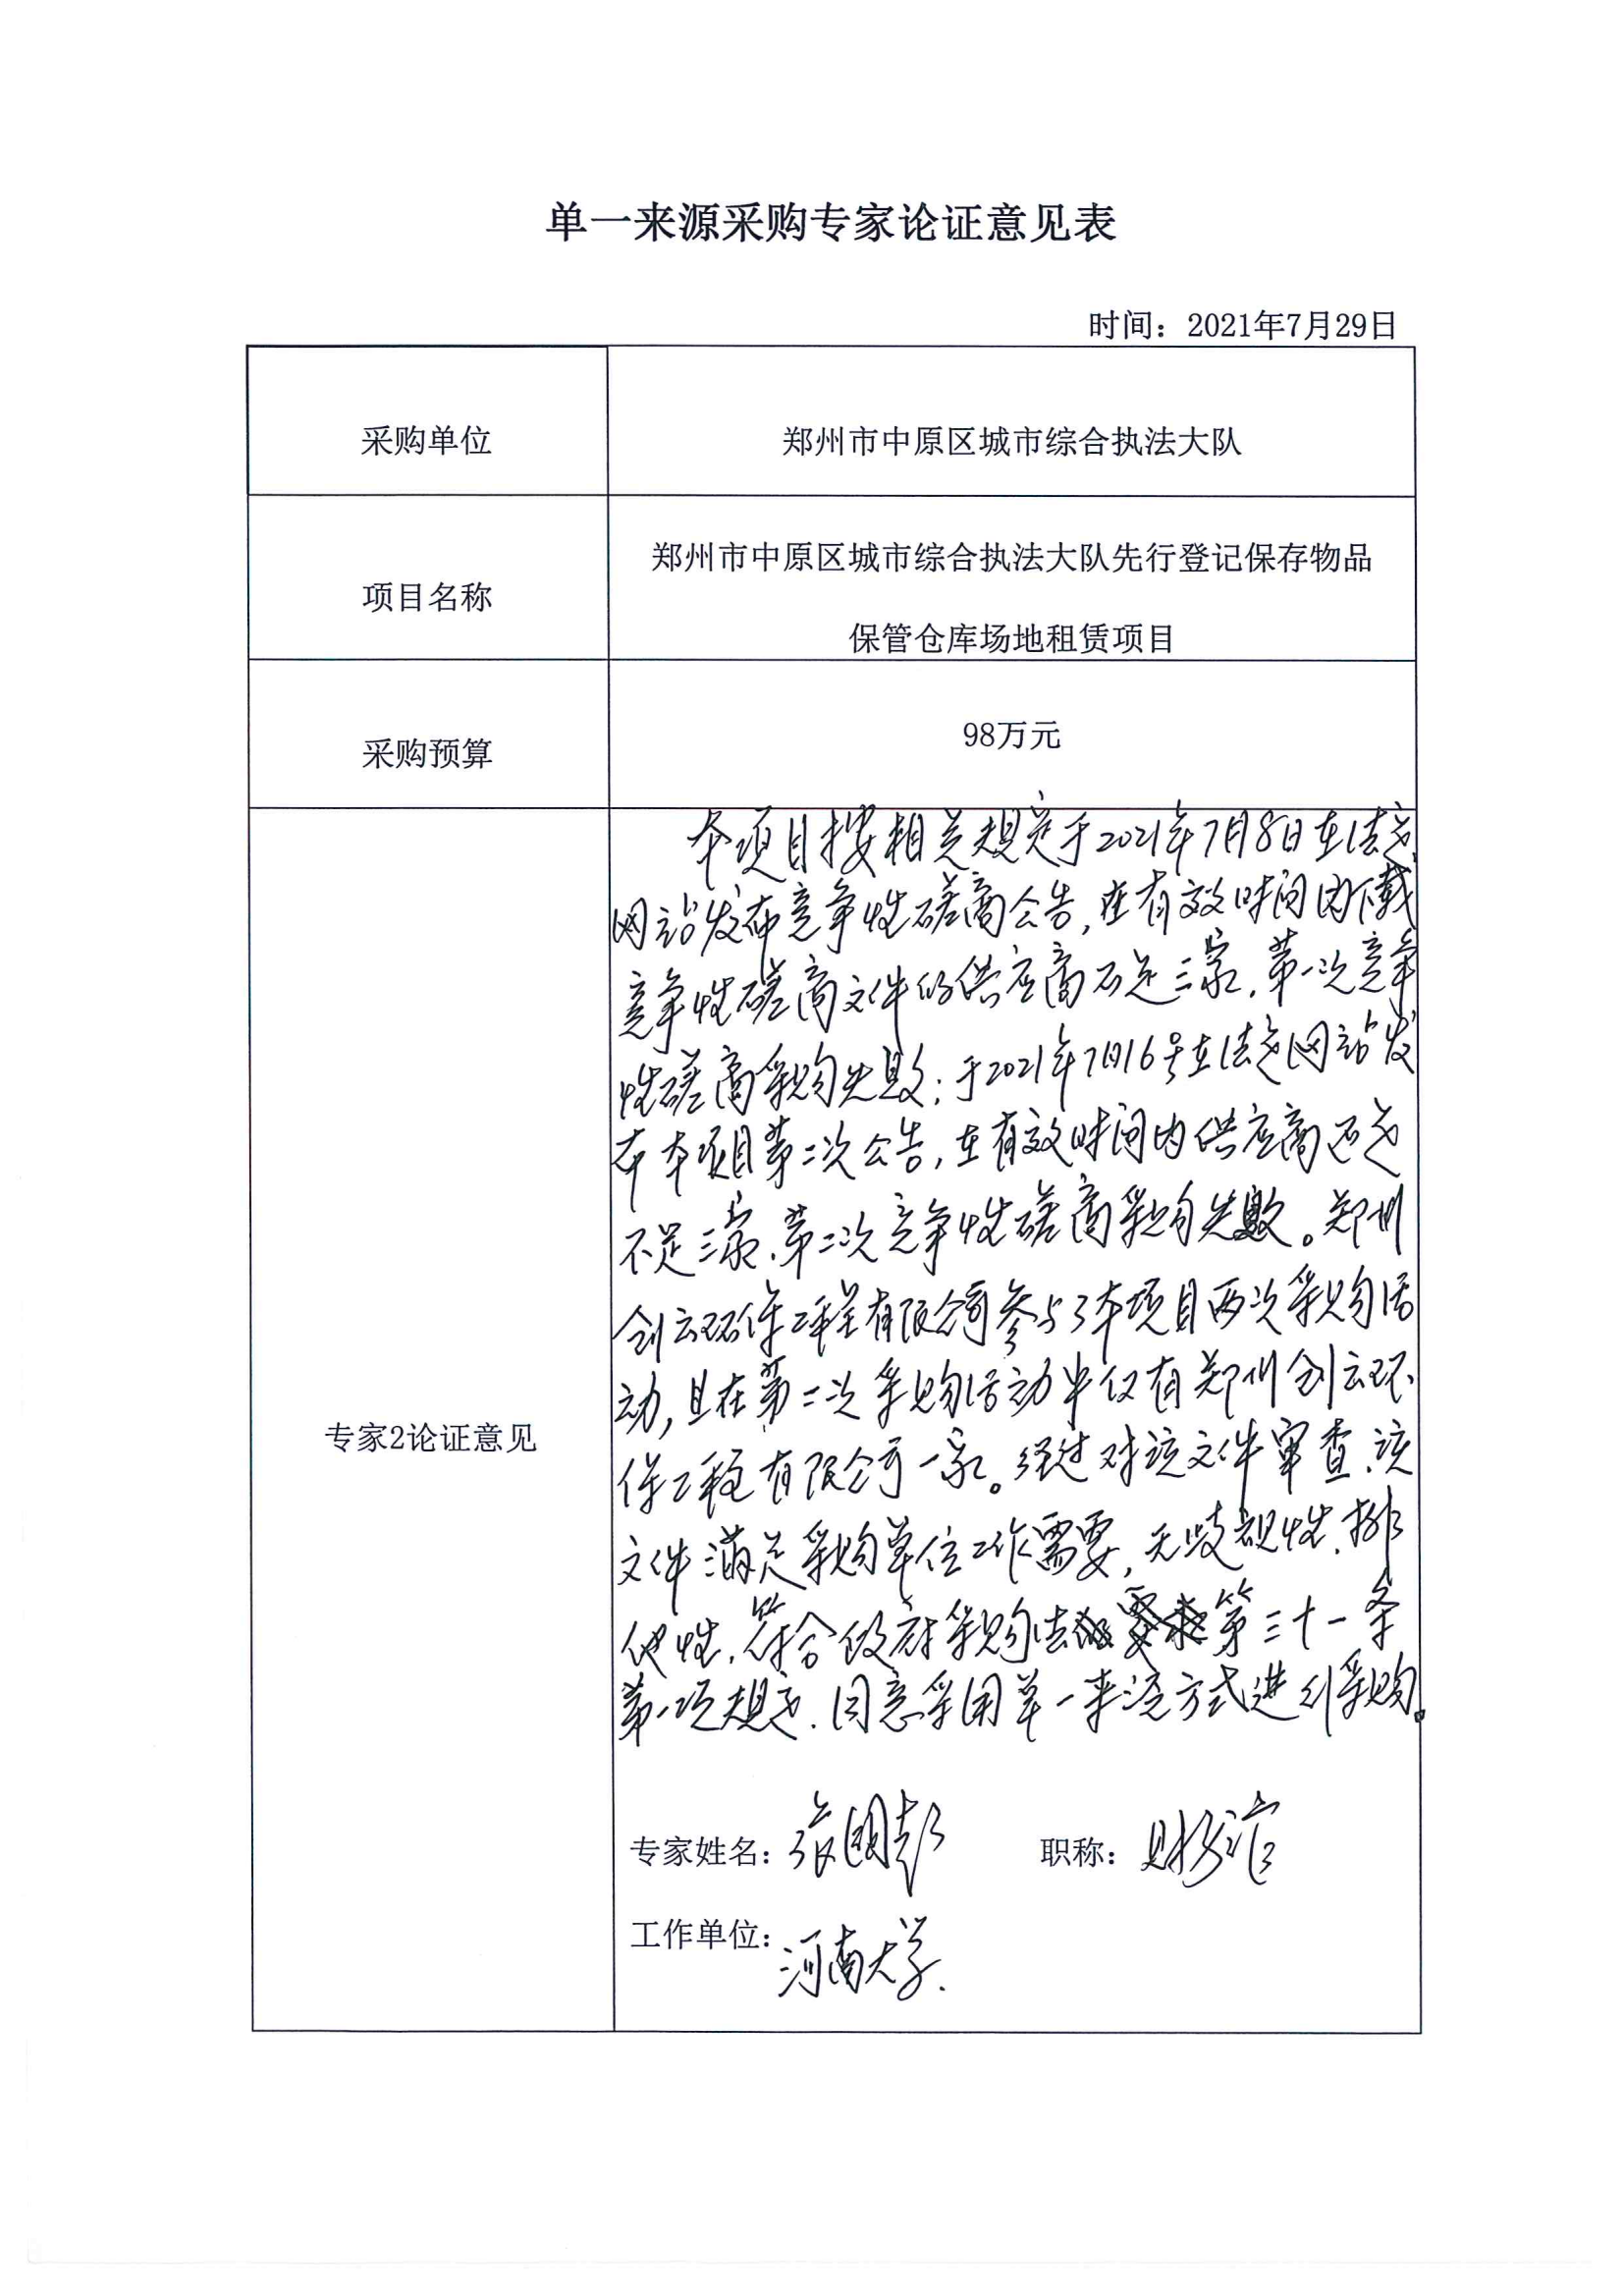 单一来源采购专家论证意见表
时间：2021年7月29日
采购单位
郑州市中原区城市综合执法大队
项目名称
郑州市中原区城市综合执法大队先行登记保存物品
保管仓库场地租赁项目
采购预算
98万元
专家2论证意见
本项目按相关规定于2021年7月8日在法定
网站发布竞争性磋商公告,在有效时间内下载
竞争性磋商文件的供应商不足三家,第一次竞争
性磋商采购失败;于2021年7月16号在法定网站发
布本项目第二次公告,在有效时间内供应商还是
不足三家,第二次竞争性磋商采购失败。郑州
创云环保工程有限公司参与了本项目两次采购活
动,且在第二次采购活动中仅有郑州创云环
保工程有限公司一家。经过对该文件审查,该
文件满足采购单位工作需要,无歧视性,排
他性,符合政府采购法第三十一条
第一项规定,同意采用单一来源方式进行采购。
专家姓名：张国彭 职称：
工作单位：河南大学.